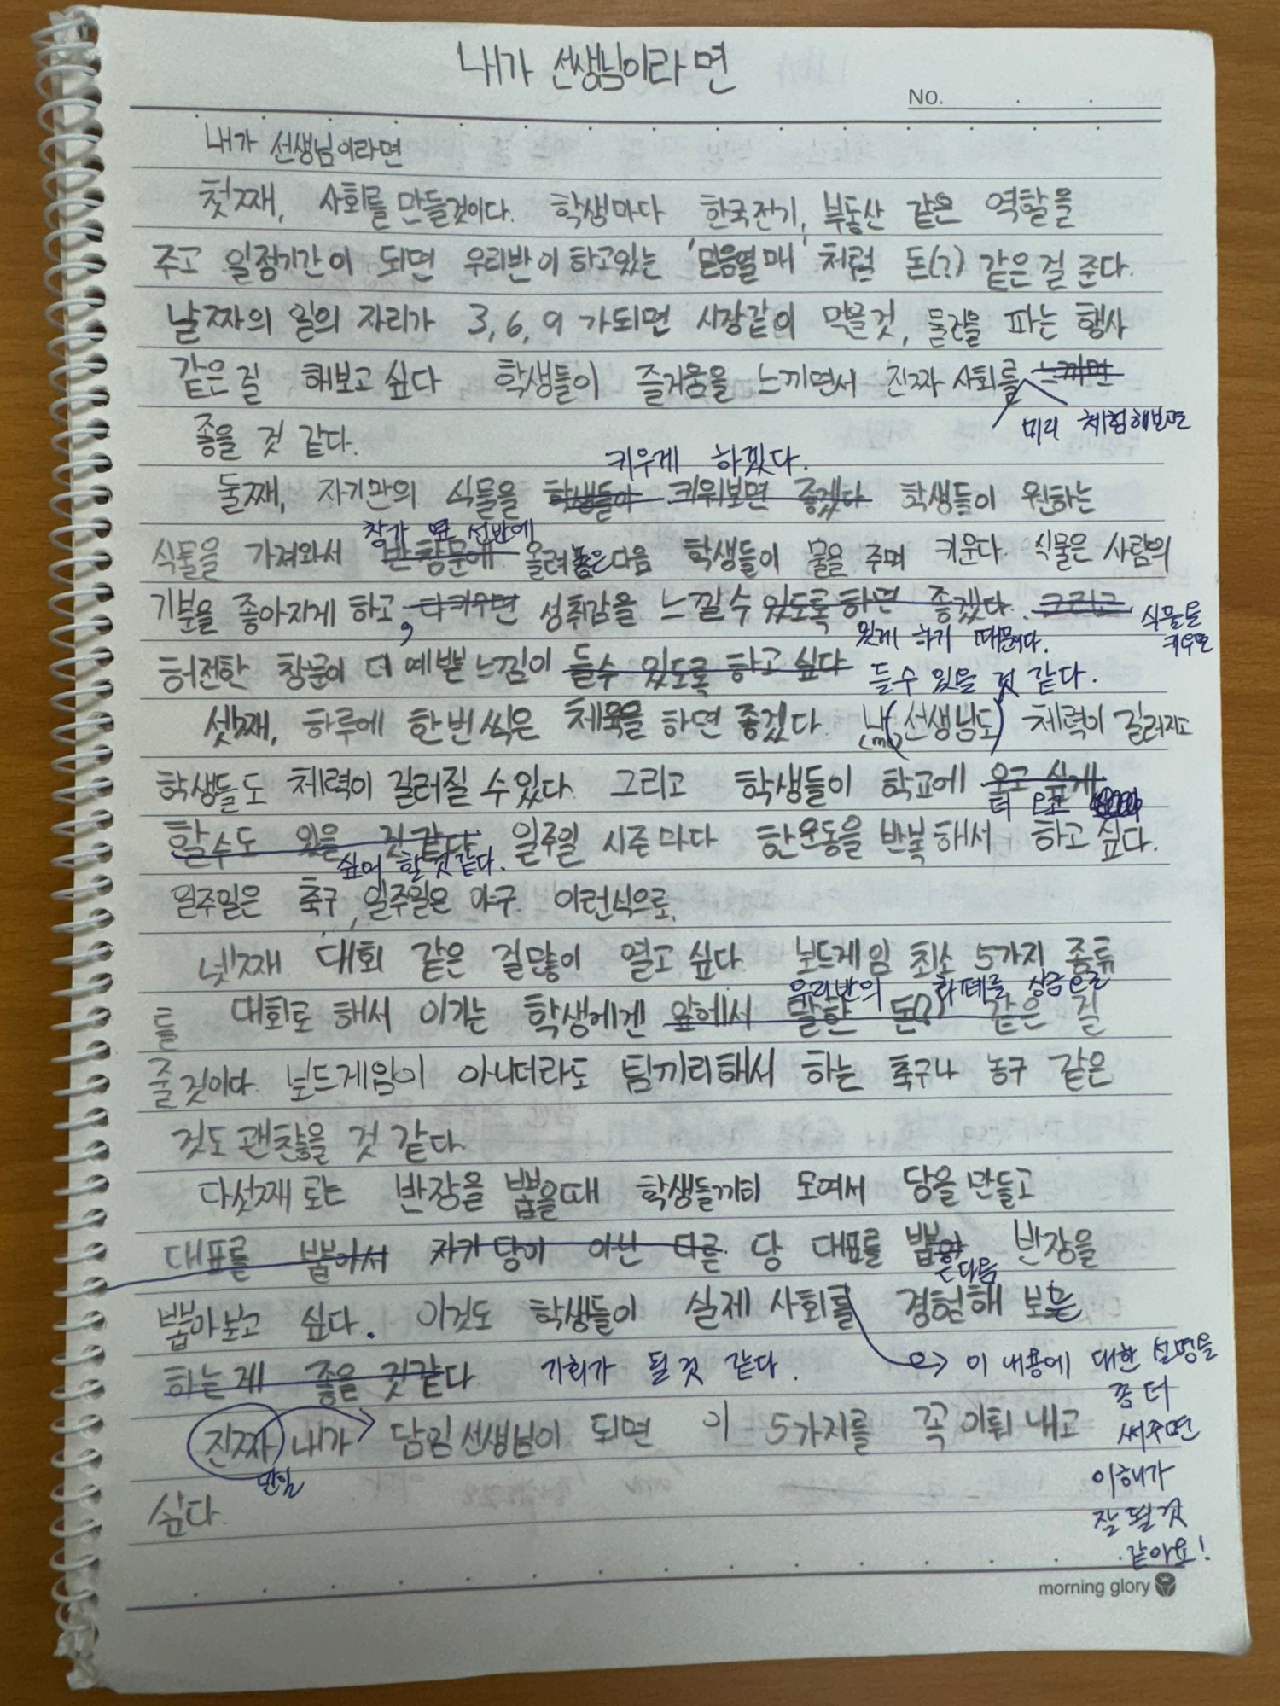 내가 선생님이라면
No.
내가 선생님이라면
첫째, 사회를 만들것이다. 학생마다 한국전기, 부동산 같은 역할을
주고 일정기간이 되면 우리반이 하고있는 '믿음열매' 처럼 돈(?) 같은걸 준다.
날짜의 일의 자리가 3, 6, 9 가되면 시장같이 먹을것, 물건을 파는 행사
같은걸 해보고 싶다 학생들이 즐거움을 느끼면서 진짜 사회를 느끼면
미리 체험해보면
좋을 것 같다.
키우게 하겠다.
둘째, 자기만의 식물을 학생들이 키워보면 좋겠다. 학생들이 원하는
창가 옆 선반에
식물을 가져와서 반 창문에 올려놓은다음 학생들이 물을 주며 키운다. 식물은 사람의
기분을 좋아지게 하고, 다키우면 성취감을 느낄수 있도록 하면 좋겠다. 그리고
있게 하기 때문이다.
식물을
키우면
허전한 창문이 더 예쁜 느낌이 들수 있도록 하고 싶다 들수 있을 것 같다.
셋째, 하루에 한번씩은 체육을 하면 좋겠다. 나(선생님도) 체력이 길러지고
(me)
학생들도 체력이 길러질 수있다. 그리고 학생들이 학교에 오고 싶게
더 오고
할수도 있을 것 같다. 일주일 시준마다 한운동을 반복해서 하고 싶다.
싶어 할 것 같다.
일주일은 축구, 일주일은 야구. 이런식으로,
넷째 대회 같은 걸많이 열고 싶다. 보드게임 최소 5가지 종류
우리반의 화폐를 상금으로
를 대회로 해서 이기는 학생에겐 앞에서 말한 돈(?) 같은 걸
줄것이다. 보드게임이 아니더라도 팀끼리해서 하는 축구나 농구 같은
것도 괜찮을 것 같다.
다섯째 로는 반장을 뽑을때 학생들끼리 모여서 당을 만들고
대표를 뽑아서 자기 당이 아닌 다른 당 대표를 뽑아 반장을
은다음
뽑아보고 싶다. 이것도 학생들이 실제 사회를 경험해 보는
하는게 좋을 것같다. 기회가 될 것 같다. → 이 내용에 대한 설명을
좀 더
써주면
이해가
잘 될 것
같아요!
진짜 내가 담임선생님이 되면 이 5가지를 꼭 이뤄 내고
만일
싶다.
morning glory